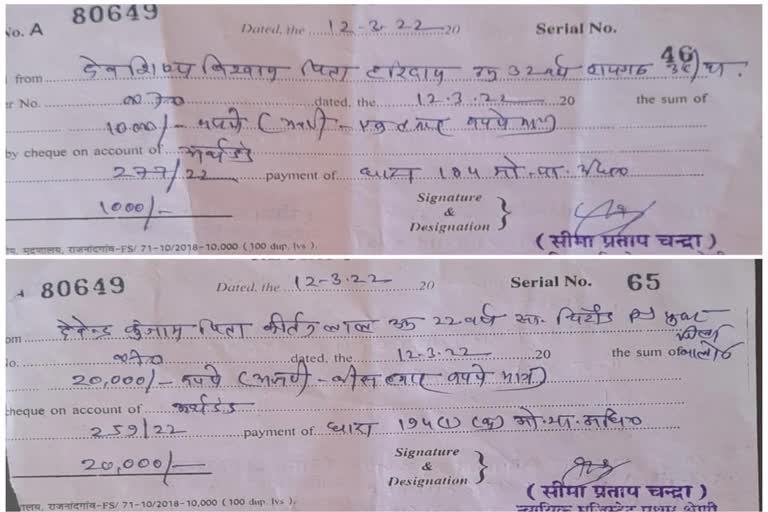 No. A 80649 Dated, the 12-3-22 20 Serial No. 46
from देवाशिष विश्वास पिता हरिदास उम्र 32 वर्ष
r No. dated, the 12.3.22 20 the sum of
10.000/- रूपये ( रूपये मात्र)
by cheque on account of अर्थदंड
277/22 payment of धारा 184 मो.या.अधि०
1000/-
Signature
&
Designation
( सीमा प्रताप चन्द्रा )
मुद्रणालय, राजनांदगांव-FS/ 71-10/2018-10,000 ( 100 dup. lvs ).
A 80649 Dated, the 12-3-22 20 Serial No. 65
om देवेन्द्र कुंजाम पिता कीर्तन लाल उम्र 22 वर्ष सा.
No. dated, the 12-3-22 20 the sum of बालोद
20,000/- रूपये (अक्षरी - बीस हजार रूपये मात्र)
cheque on account of अर्थदंड
259/22 payment of धारा 194(1) (क) मो.या.अधि०
20,000/-
Signature
&
Designation
( सीमा प्रताप चन्द्रा )
राजनांदगांव-FS/ 71-10/2018-10,000 ( 100 dup. lvs ).
न्यायिक मजिस्ट्रेट प्रथम श्रेणी